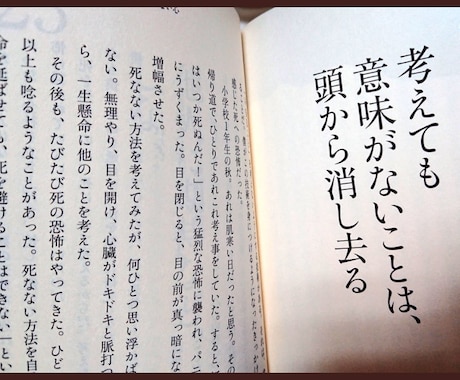 考えても
意味がないことは、
頭から消し去る
感じた死への恐怖だった。
小学校1年生の秋。あれは肌寒い日だったと思う。その
帰り道で、ひとりであれこれ考え事をしていた。すると、
はいつか死ぬんだ！」という猛烈な恐怖に襲われ、パニ
にうずくまった。目を閉じると、目の前が真っ暗にな
増幅させた。
死なない方法を考えてみたが、何ひとつ思い浮かば
ない。無理やり、目を開け、心臓がドキドキと脈打つ
ら、一生懸命に他のことを考えた。
その後も、たびたび死の恐怖はやってきた。ひど
以上も唸るようなことがあった。死なない方法を自
命を延ばせても、死を避けることはできない」とい